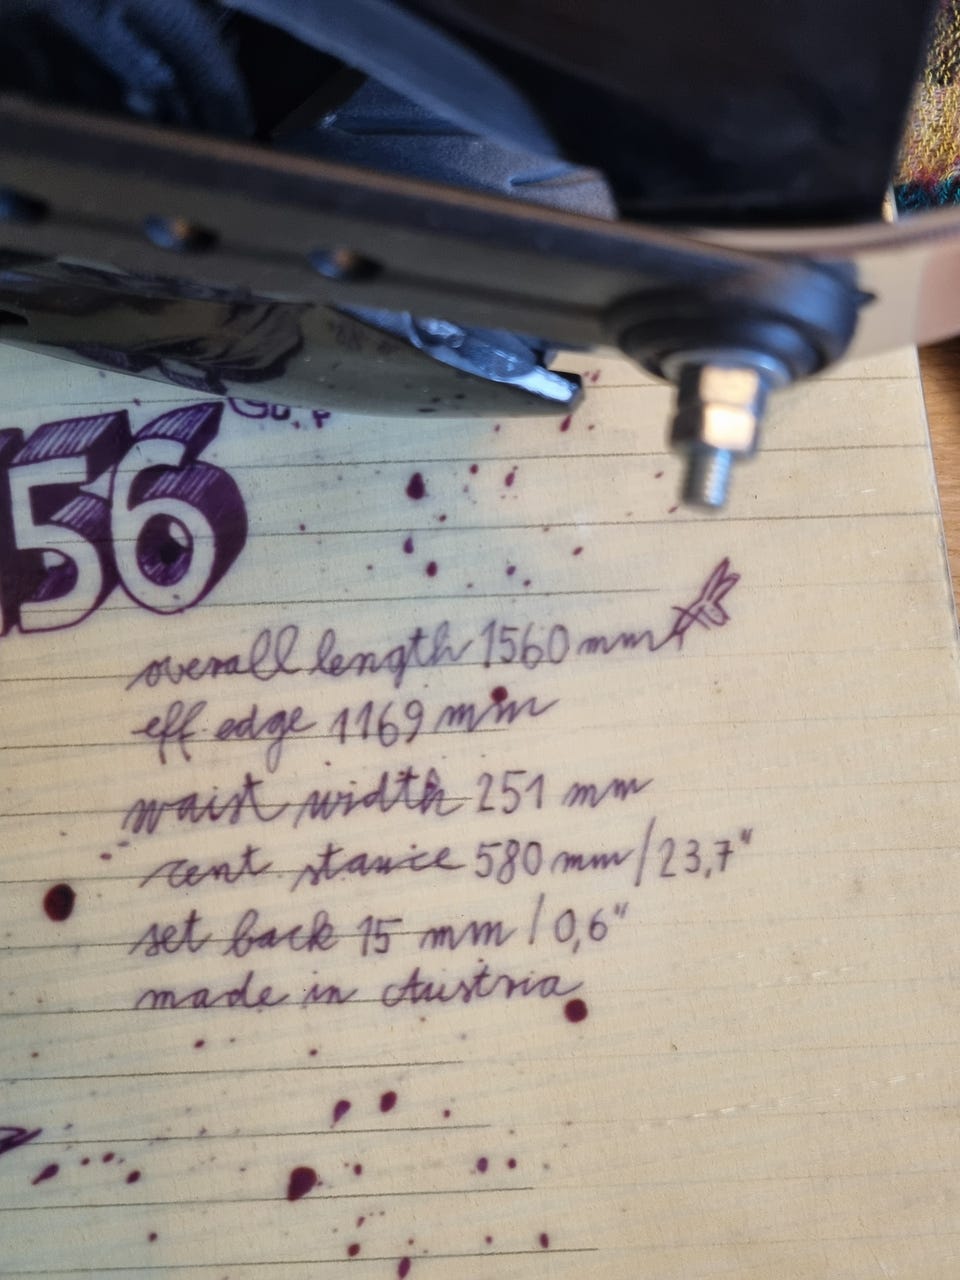 156
overall length 1560 mm
eff. edge 1169 mm
waist width 251 mm
cent stance 580 mm/23,7"
set back 15 mm/0,6"
made in Austria